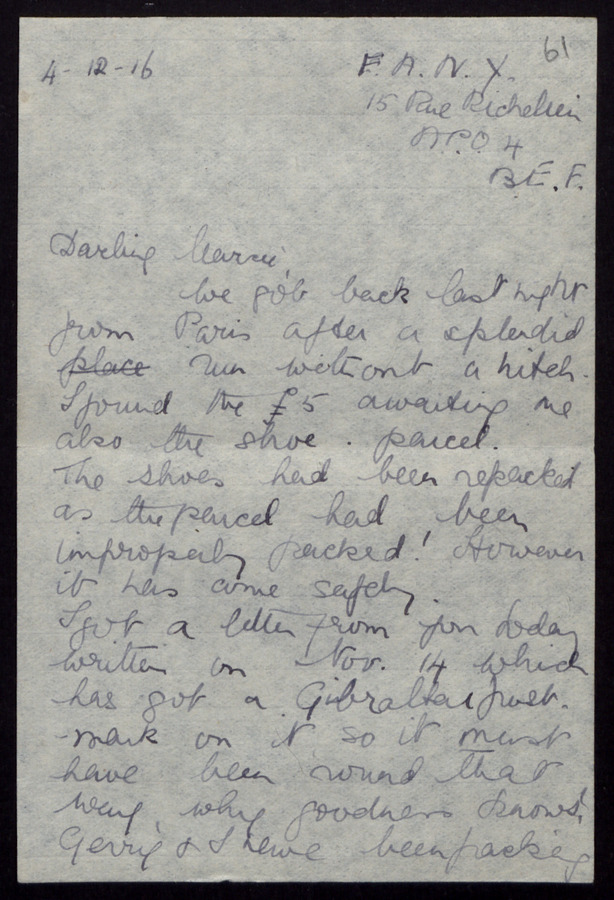 61
4-12-16
F.A.N.Y.
15 Rue Richelieu
A.P.O. 4
B.E.F.
Darling
We got back last night
from Paris after a splendid
place run without a hitch.
I found the £5 awaiting me
also the shoe parcel.
The shoes had been repacked
as the parcel had been
improperly packed! However
it has come safely.
I got a letter from you today
written on Nov. 14 which
has got a Gibraltar post-
mark on it so it must
have been round that
way, why goodness knows!
& I have been packing